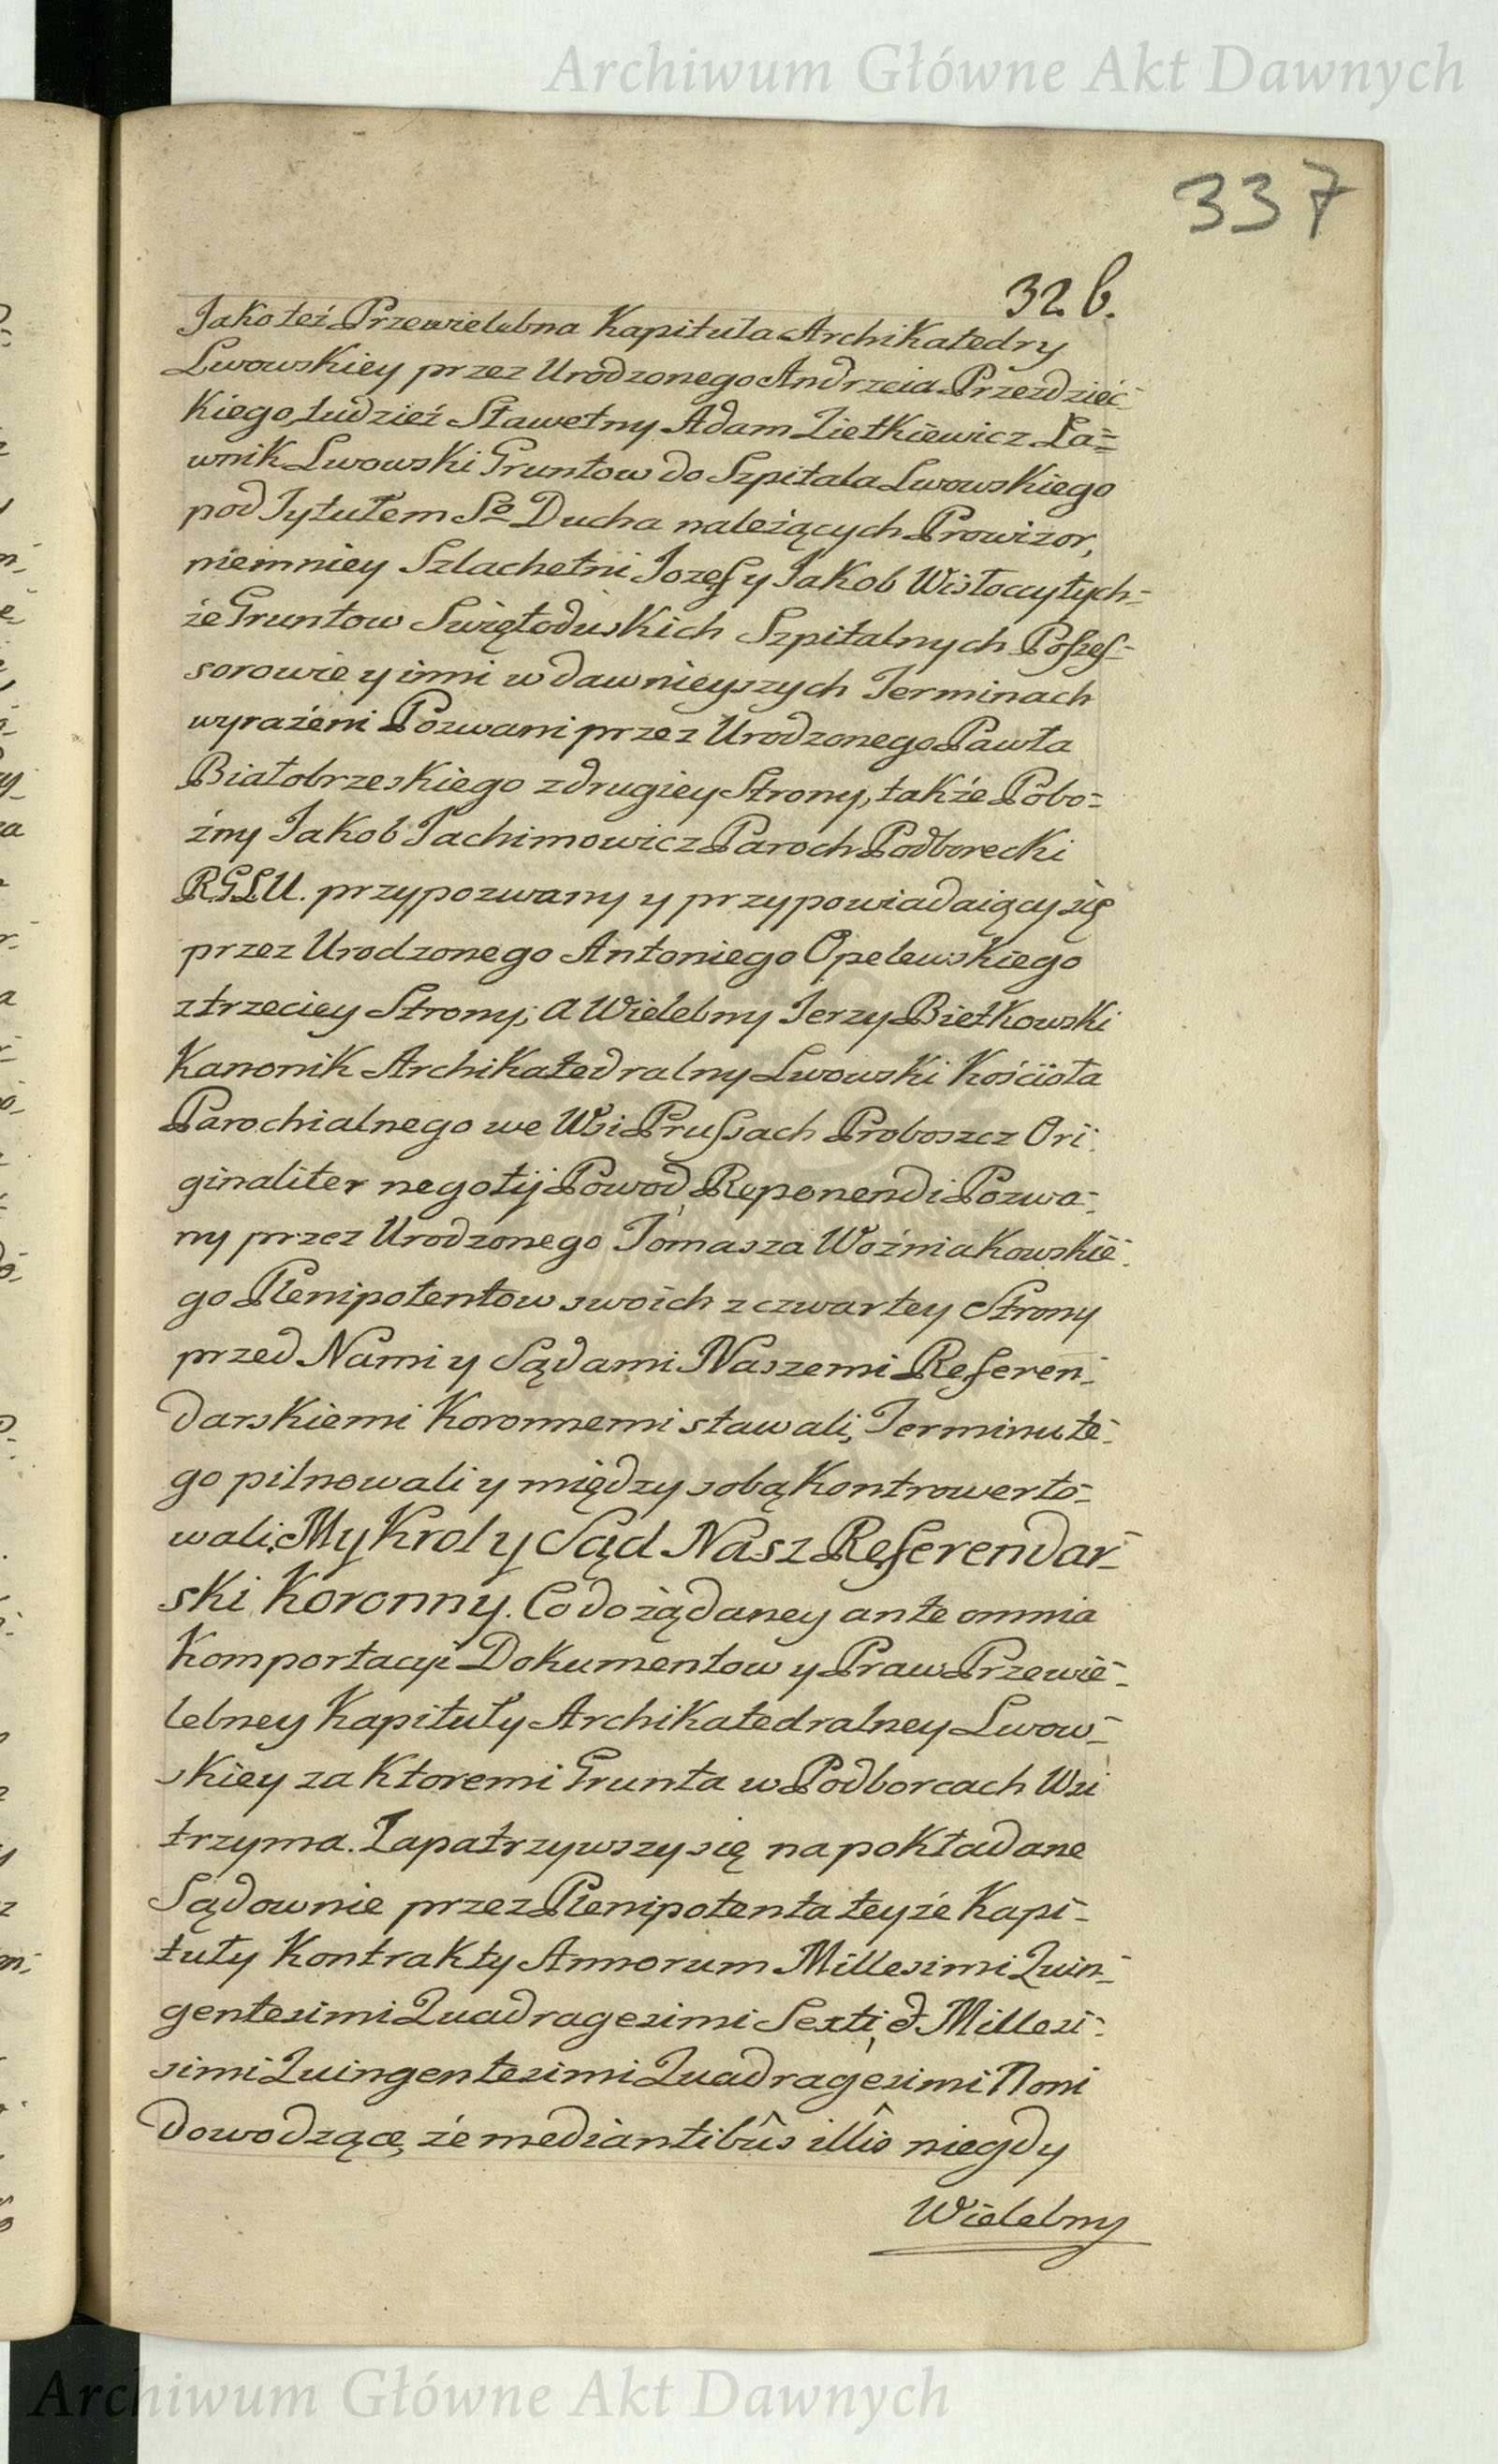 Archiwum Główne Akt Dawnych
337
32.b.
Jako też Przewielebna Kapituła Archikatedry
Lwowskiey przez Urodzonego Andrzeia Przezdziec-
kiego, tudzież Sławetny Adam Zietkiewicz Ła=
wnik Lwowski Gruntow do Szpitala Lwowskiego
pod Tytułem So Ducha należących Prowizor,
niemniey Szlachetni Jozef y Jakob Wisłoccy tych-
że Gruntow Swiętoduskich Szpitalnych Possess-
sorowie y inni w dawnieyszych Terminach
wyrażeni Pozwani przez Urodzonego Pawła
Białobrzeskiego z drugiey Strony, także Pobo=
żny Jakob Jachimowicz Paroch Podborecki
R.G.L.U. przypozwany y przypowiadaiący się
przez Urodzonego Antoniego Opelewskiego
z trzeciey Strony; a Wielebny Jerzy Biełkowski
Kanonik Archikatedralny Lwowski Kościoła
Parochialnego we Wsi Prussach Proboszcz Ori-
ginaliter negotij Powod, Reponendi Pozwa-
ny przez Urodzonego Tomasza Woźniakowskie-
go Plenipotentow swoich z czwartey Strony
przed Nami y Sądami Naszemi Referen-
darskiemi Koronnemi stawali, Terminu te-
go pilnowali y między sobą Kontrowerto-
wali. My Krol y Sąd Nasz Referendar-
ski Koronny. Co do żądaney ante omnia
Komportacyi Dokumentow y Praw Przewie-
lebney Kapituły Archikatedralney Lwow-
skiey za ktoremi Grunta w Podborcach Wsi
trzyma. Zapatrzywszy się na pokładane
Sądownie przez Plenipotenta teyże Kapi-
tuły Kontrakty Annorum Millesimi Quin-
gentesimi Quadragesimi Sexti, & Millesi-
simi Quingentesimi Quadragesimi Noni
dowodzące, że mediantibûs illîs niegdy
Wielebny
Archiwum Główne Akt Dawnych